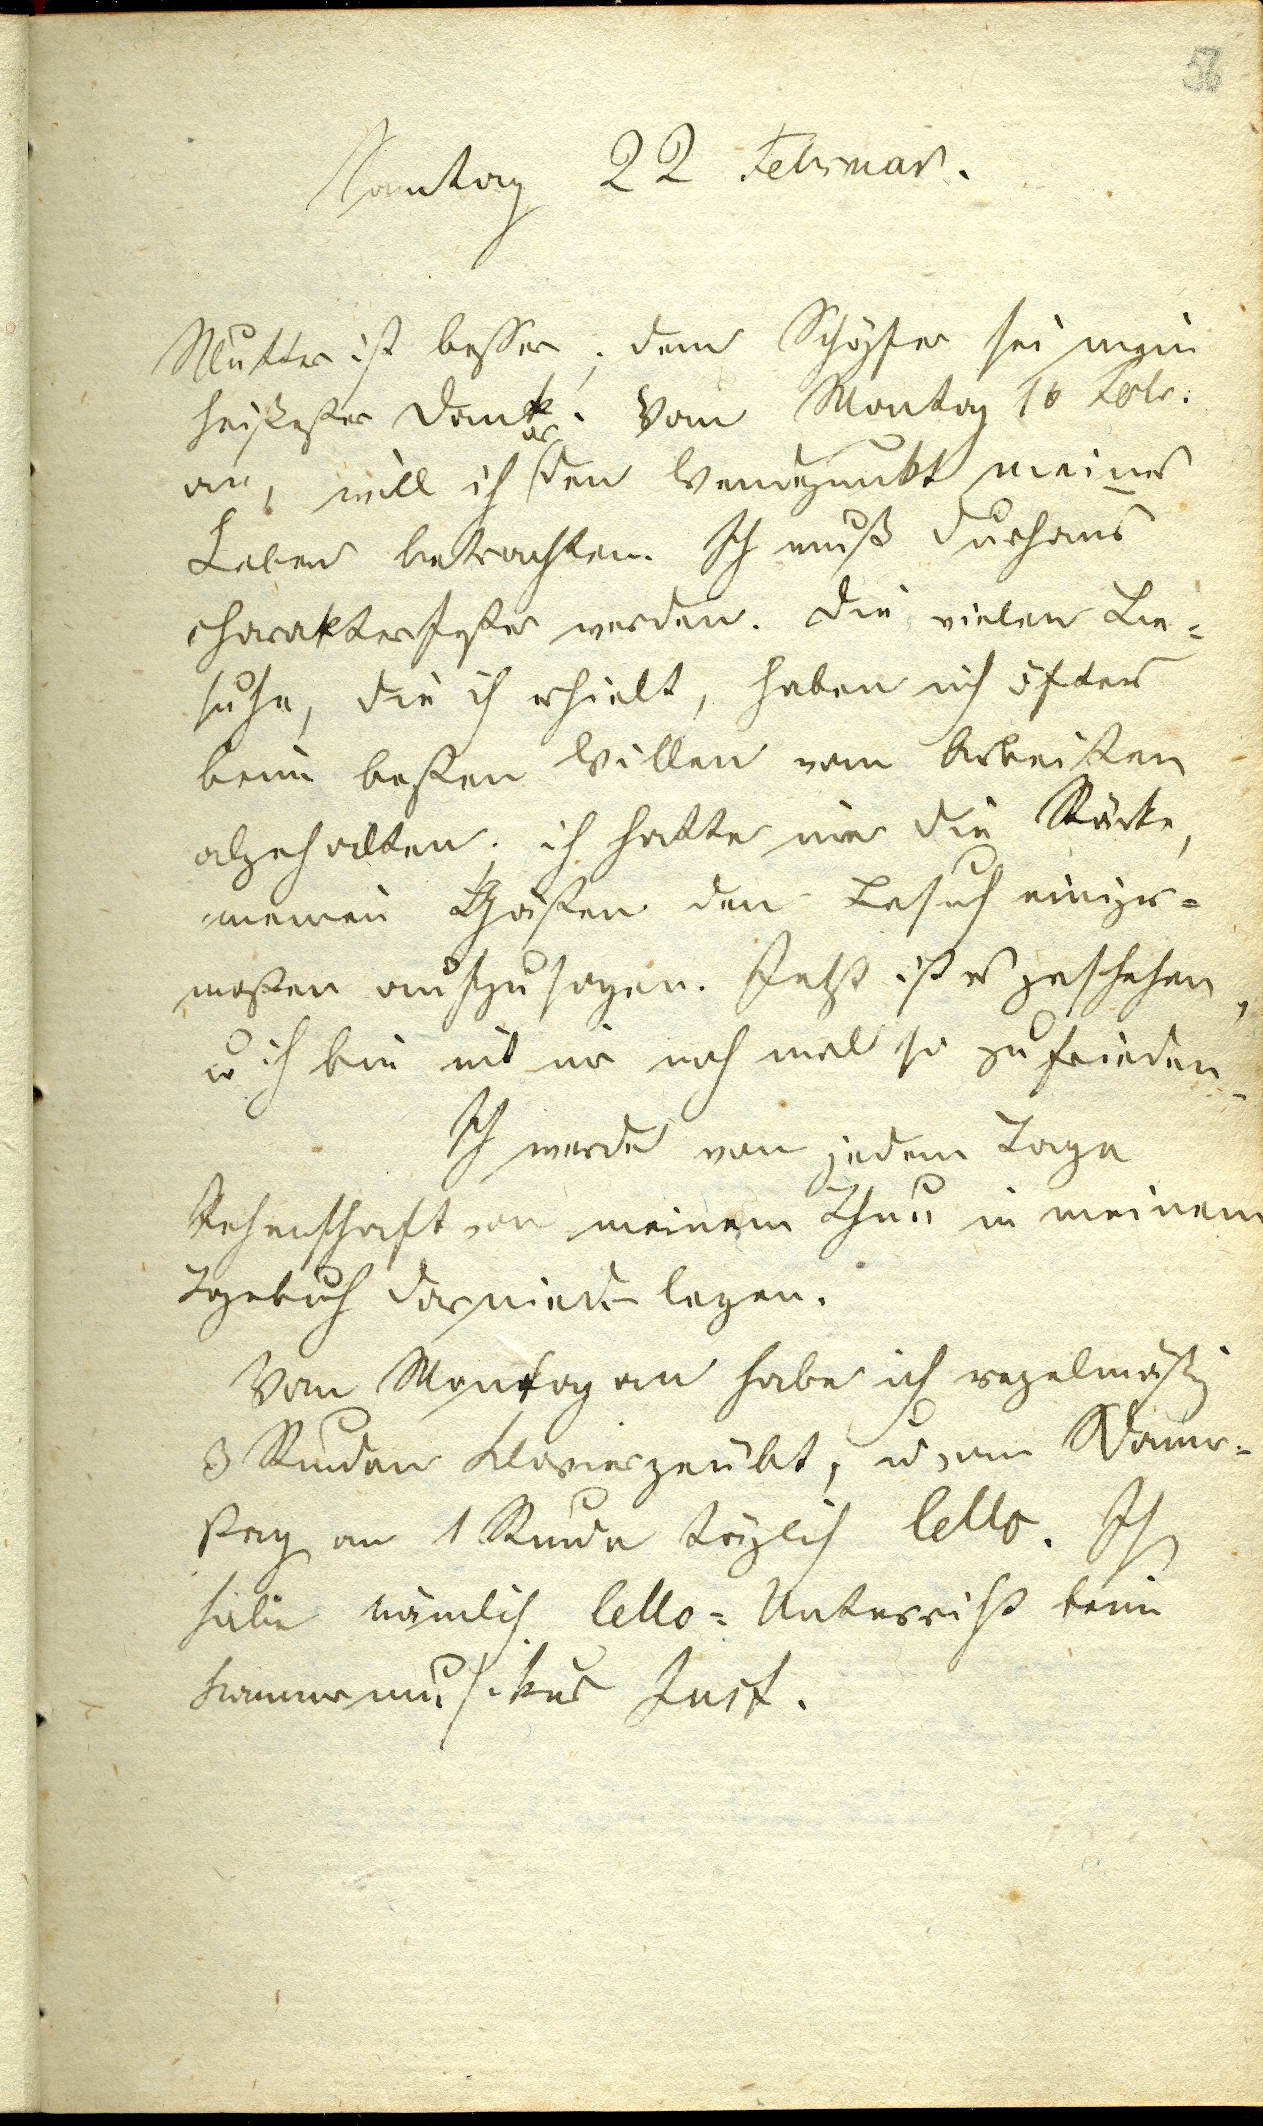 56
Sonntag 22 Februar.
Mutter ist besser; dem Schöpfer sei mein
heißester Dank. Vom Montag 16 Febr.
an, will ich den Wendepunkt meines
Lebens betrachten. Ich muß durchaus
charakterfester werden. Die vielen Be-
suche, die ich erhielt, haben mich öfters
beim besten Willen vom Arbeiten
abgehalten; ich hatte nie die Stärke,
meinen Gästen den Besuch einiger-
maßen aufzusagen. Jetzt ist es geschehen,
u ich bin mit mir noch mal so zufrieden.
Ich werde von jedem Tage
Rechenschaft von meinem Thun in meinem
Tagebuch darnieder legen.
Vom Montag an habe ich regelmäßig
3 Stunden Klavier geübt, u vom Donner-
stag an 1 Stunde täglich Cello. Ich
habe nämlich Cello-Unterricht beim
Kammermusikus Just.